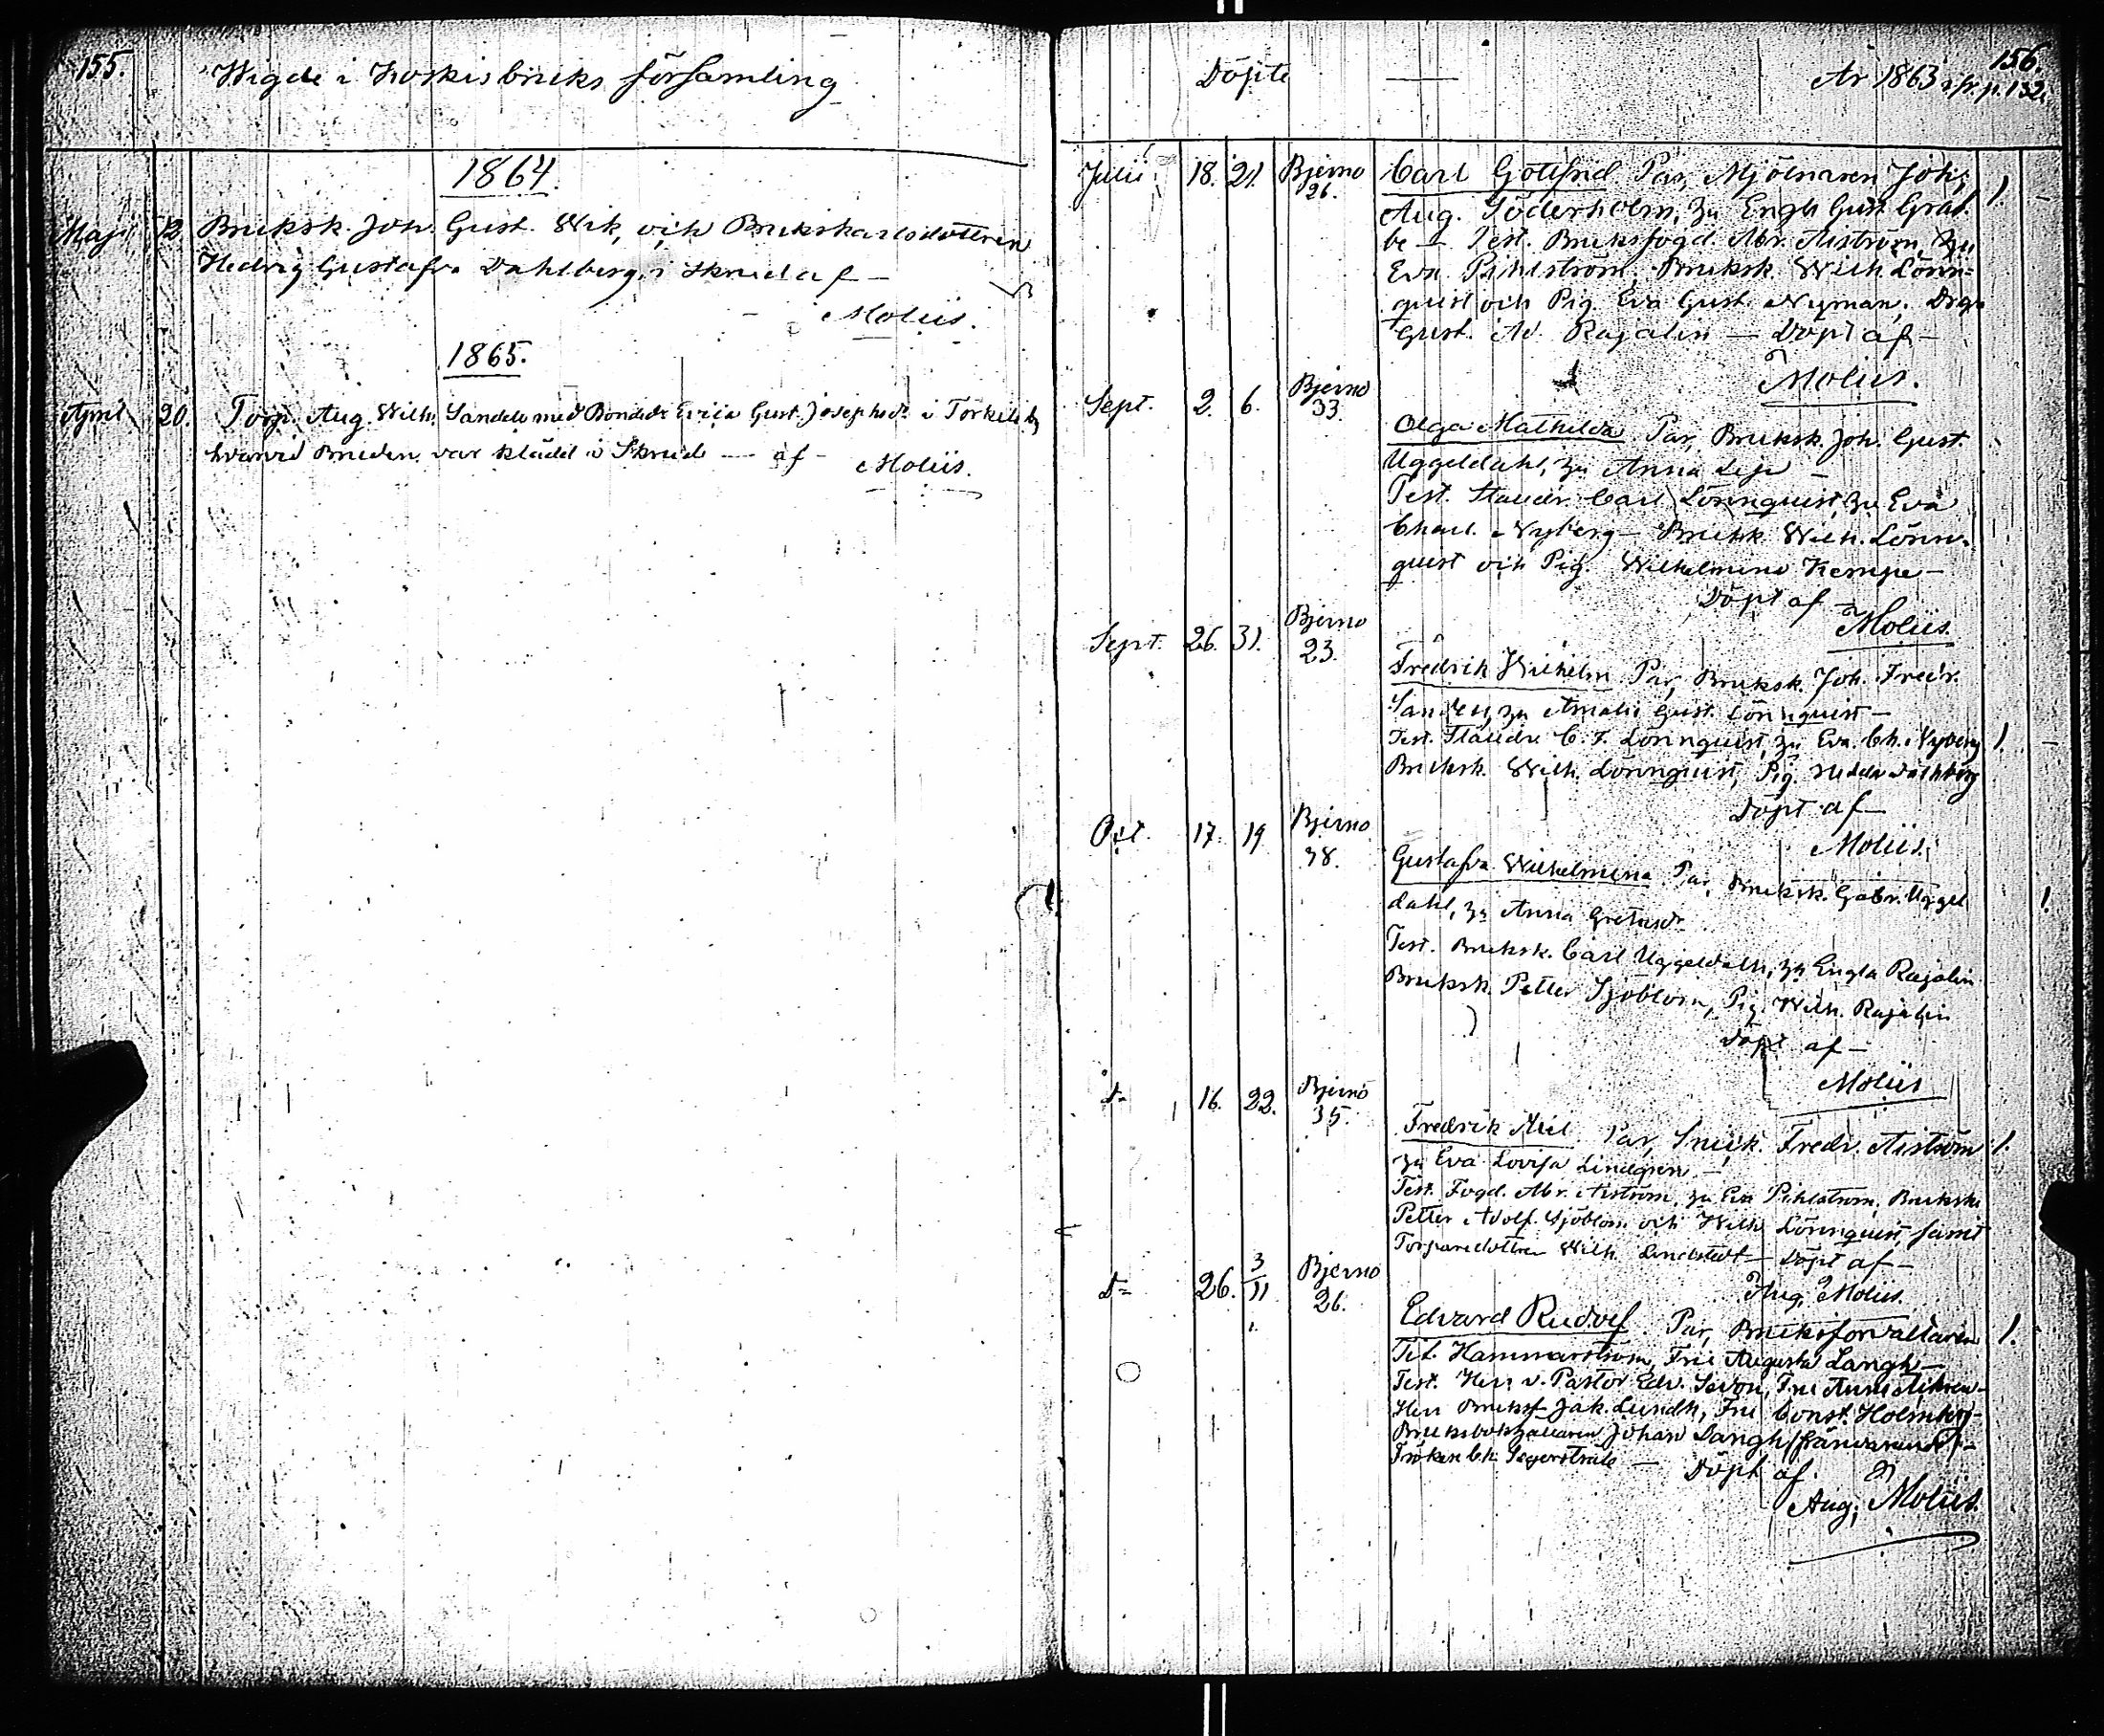 155.
Wigde i Koskis bruks församling
1864.
Maji 12 Bruksk. Joh. Gust. Wik, och Brukskarlsdottren
Hedvig Gustafva Dahlberg, i skrud af —
Molliis.
1865.
April 20. Torp. Aug. Wilh. Sandell med Bondedr Gust. Josephsdr i Torkilsby
hvarvid Bruden var klädd i Skrud — af —
Moliis.
Döpte — År 1863 156.
p. 132.
Julii 18. 21. Bjerno 26. Carl Gottfrid Par, Mjölnaren Joh.
Aug. Söderholm, hu Engla Gust. Grab-
be — Test. Bruksfogd. Abr. Aiström, hu
Eva Pihlström, Bruksk. Wilh. Lönn-
quist och Pig. Eva Gust. Nyman, Drg.
Gust. Ad. Rajalin — Döpt af —
Moliis.
Sept. 2. 6. Bjerno 33. Olga Mathilda Par, Bruksk. Joh. Gust.
Uggeldahl, hu Anna Lisa —
Test. Stalldr. Carl Lönnquist, hu Eva
Charl. Nyberg — Bruksk. Wilh. Lönn-
quist och Pig. Wilhelmina Kempe —
Döpt af —
Moliis.
Sept. 26. 31. Bjerno 23. Fredrik Wilhelm Par, Bruksk. Joh. Fredr.
Sandell, hu Amalia Gust. Lönnquist —
Test. Stalldr. C. F. Lönnquist, hu Eva Ch. Nyberg
Bruksk. Wilh. Lönnquist, Pig. Hedda Dahlberg
Döpt af —
Moliis.
Oct. 17. 19 Bjerno 38. Gustafva Wilhelmina Par, Bruksk. Gabr. Uggel
dahl, hu Anna Gretasdr
Test. Bruksk. Carl Uggeldahl, hu Engla Rajalin
Bruksk. Petter Sjöblom, Pig. Wilh. Rajalin
Döpt af —
Moliis
D= 16. 22. Bjernö 35. Fredrik Par, Snick. Fredr. Aiström
hu Eva Lovisa Lindgren —
Test. Fogd. Abr. Aiström, hu Eva Pihlström, Bruksk.
Petter Adolf Sjöblom och Wilh. Lönnquist, samt
Torparedottren Wilh. Lindstedt — Döpt af —
Aug. Moliis.
D= 26. 3/11 Bjerno 26. Edvard Rudolf Par, Bruksförvaltaren
Tit. Hammarström, Fru Augusta Langh —
Test. Herr v. Pastor Edv. Sevon, Fru
Herr Bruksf. Jak. Lundh, Fru Const. Holmberg —
Bruksbokhållaren Johan Langh (frånvarande) —
Fröken Ch. Segerstråle — Döpt af
Aug. Moliis.